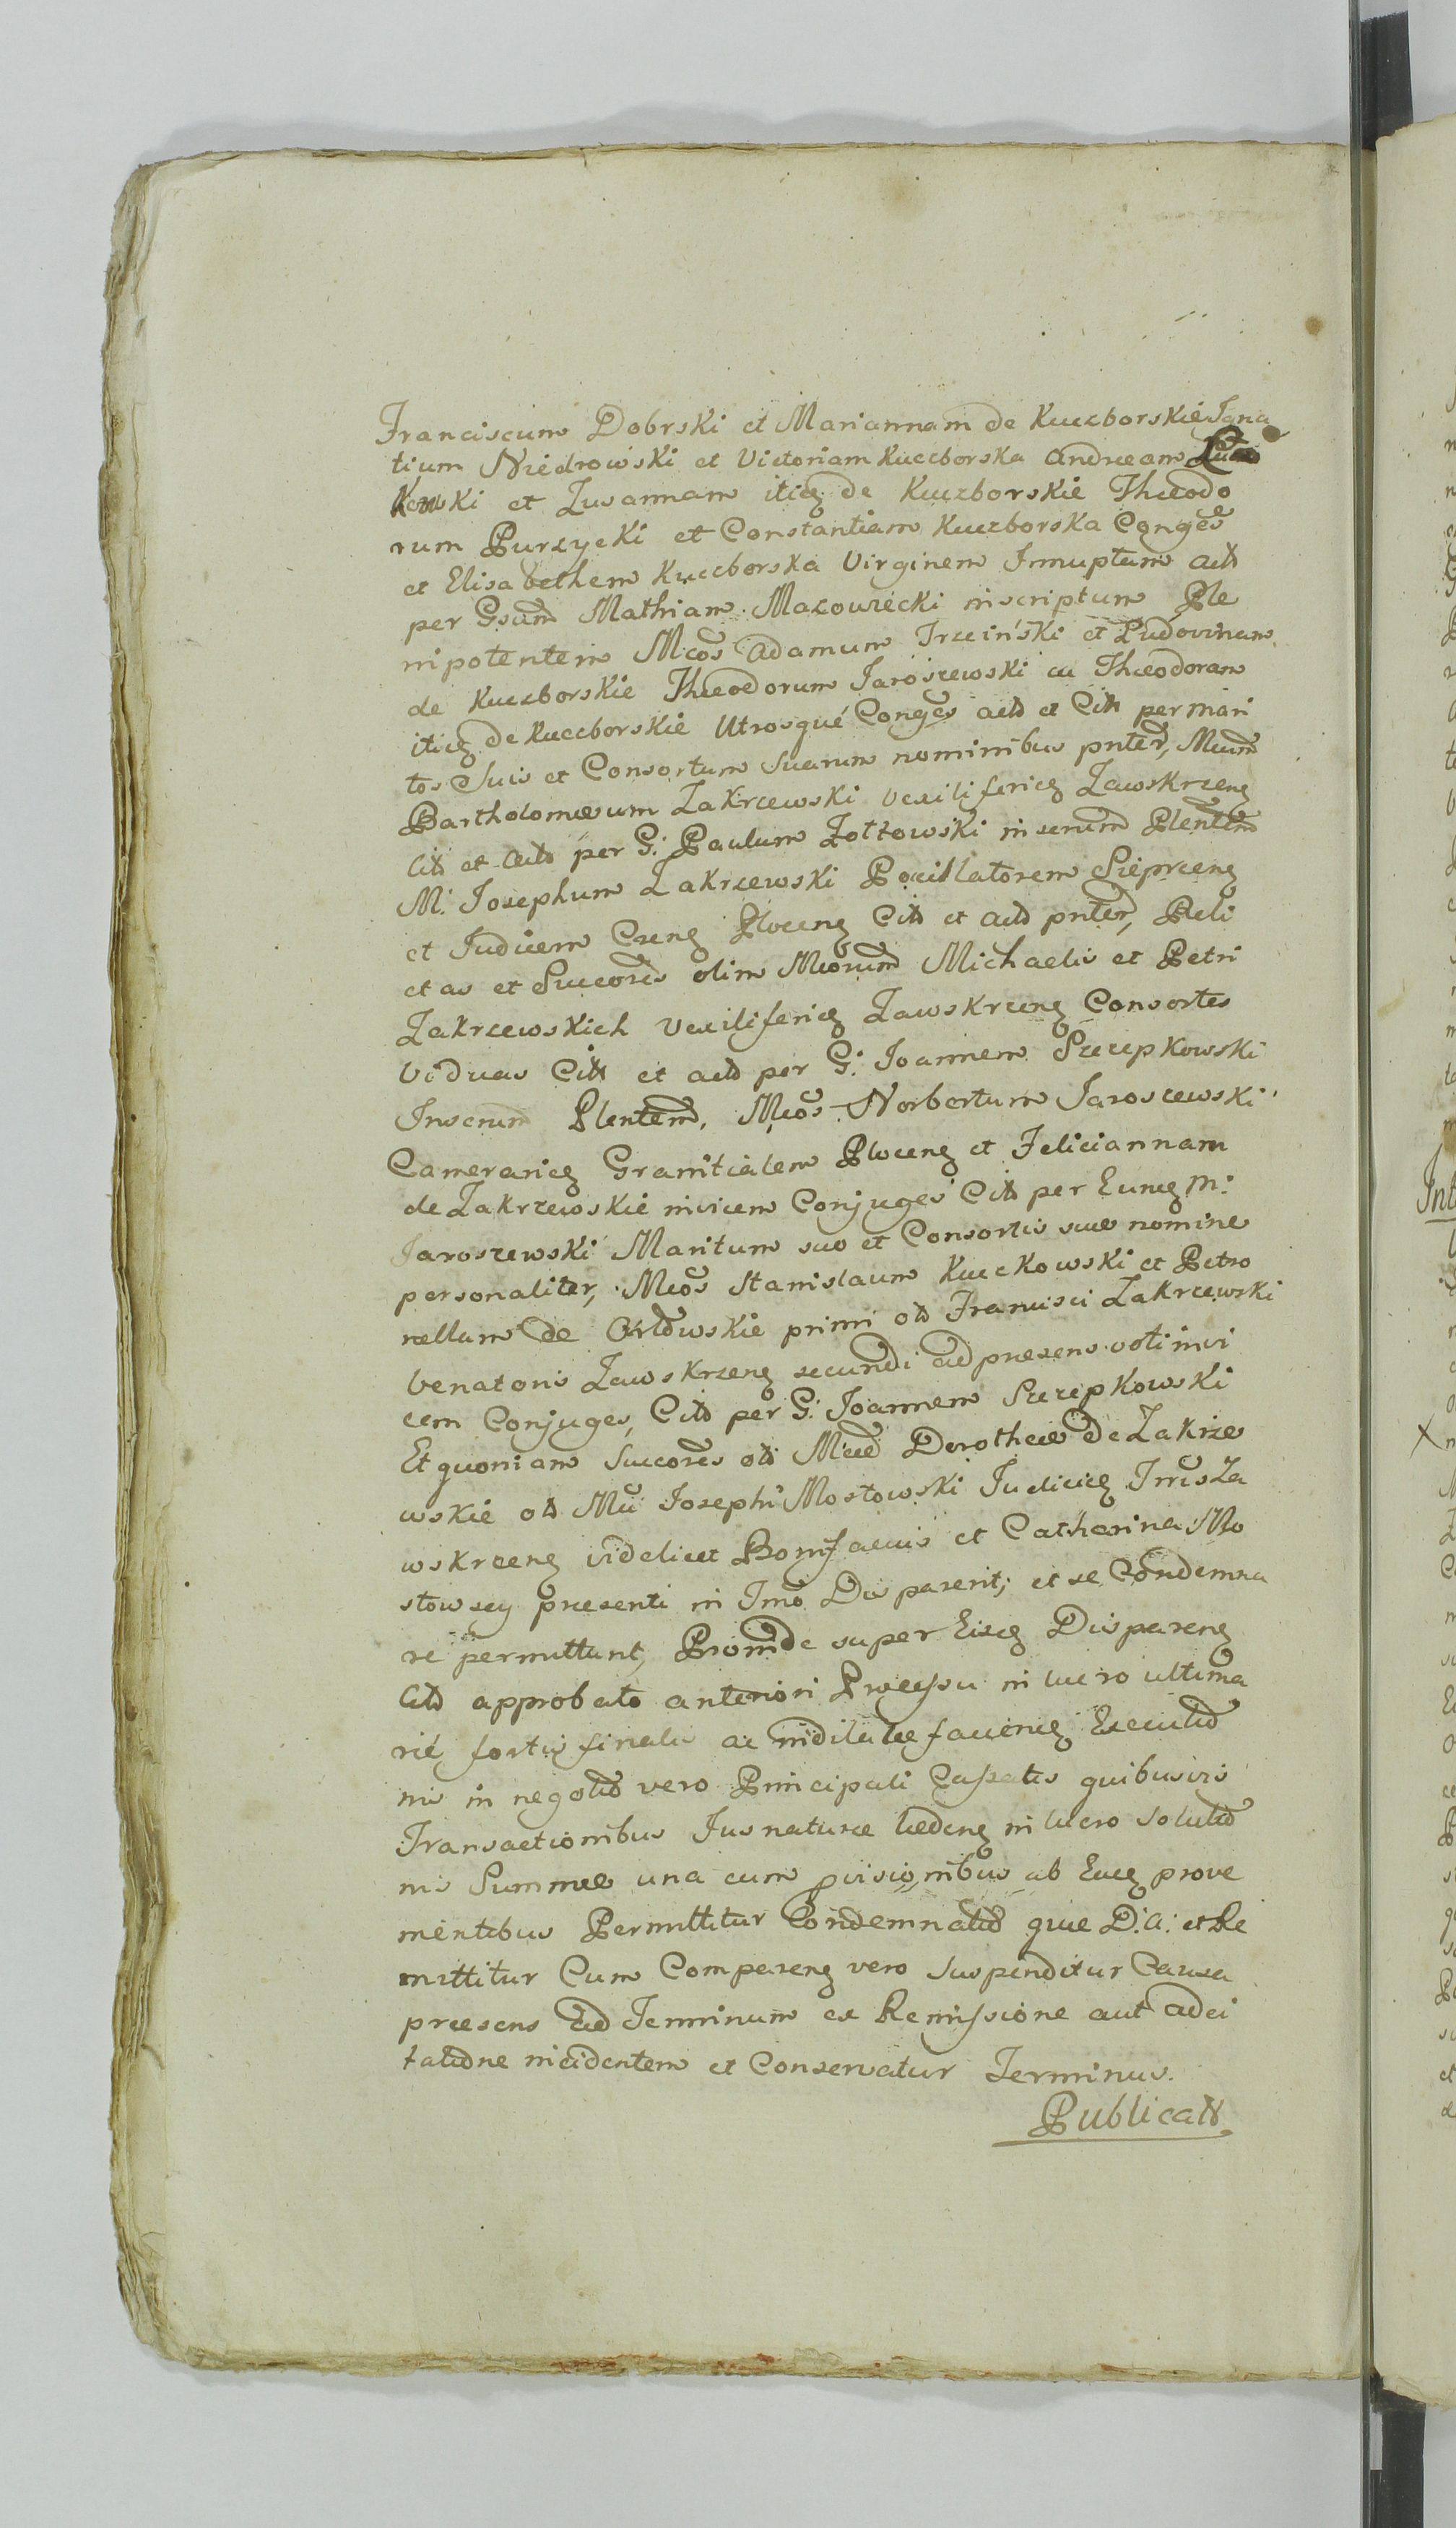 Franciscum Dobrski et Mariannam de Kuczborskie Igna
tium Niedrowski et Victoriam Kuczborska Andream
Kowski et Zusannam itieg de Kuczborskie Theodo
rum Purzycki et Constantiam Kuczborska Conges
et Elisabethem Kuczborska Virginem Innuptam actt
per Gsum Mathiam Mazowiecki inscriptum Ple
nipotentem Mcos Adamum Trzciński et Ludovinam
de Kuczborskie Theodorum Jaroszewski ac Theodoram
itieg de Kuczborskie Utrosque Conges actt et Citt per mari
tos Suis et Consortum Suarum nominibus pnter, Mcum
Bartholomæum Zakrzewski Vexiliferieg Zawskrzeng
Citt et Actt per G: Paulum Zołtowski inserum Plentem
M. Josephum Zakrzewski Pocillatorem Sieprceng
et Judicem Cseng Ploceng Citt et actt pnter, Reli
ctas et Succores olim Mcorum Michaelis et Petri
Zakrzewskich Vexiliferieg Zawskrzeng Consortes
Viduas Citt et actt per G: Joannem Szczepkowski
Inserum Plentem, Mcos Norbertum Jaroszewski
Camerarieg Granitialem Ploceng et Feliciannam
de Zakrzewskie invicem Conjuges Citt per Eumeg M:
Jaroszewski Maritum suo et Consortis suæ nomine
personaliter, Mcos Stanislaum Kuczkowski et Petro
nellam de Orłowskie primi ott Francisci Zakrzewski
Venatoris Zawskrzeng secundi ad præsens voti invi
cem Conjuges, Citt per G: Joannem Szczepkowski
Et quoniam Succores ott Mcæ Dorotheæ de Zakrze
wskie ott Mci Josephi Mostowski Judicieg Trris Za
wskrzeng videlicet Bonifacius et Catharina Mo
stowscy præsenti in Tmo Disparent; et se Condemna
re permittunt, Proinde super Eiseg Dispareng
Citt approbato anteriori Processu in lucro ultima
rie fortis finalis ac indilatæ facieneg Executio
nis in negotio vero Principali Cassatis quibusvis
Transactionibus Jus naturæ lædeng in lucro Solutio
nis Summæ una cum pvisionibus ab Eaeg prove
nientibus Permittitur Condemnatio quæ D: A: et Re
mittitur Cum Compareng vero suspenditur Causa
præsens Ad Terminum ex Remissione aut adci
tatione incidentem et Conservatur Terminus.
Publicatt